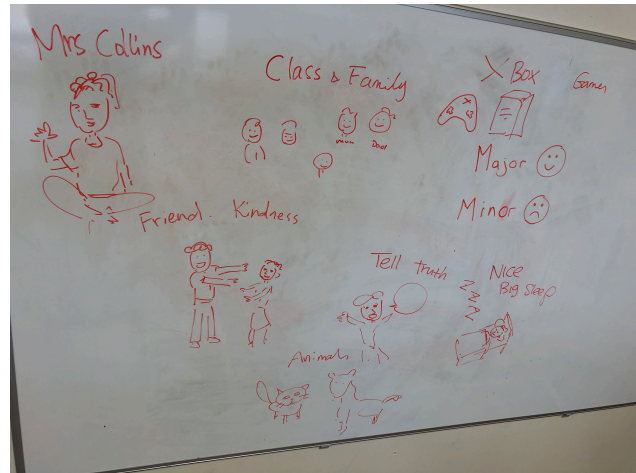 Mrs Collins
Class & Family
X Box
Games
Mum
Dad
Major
Minor
Friend. Kindness
Tell truth
NICE
Big Sleep
Z
Z
Z
Z
Animals